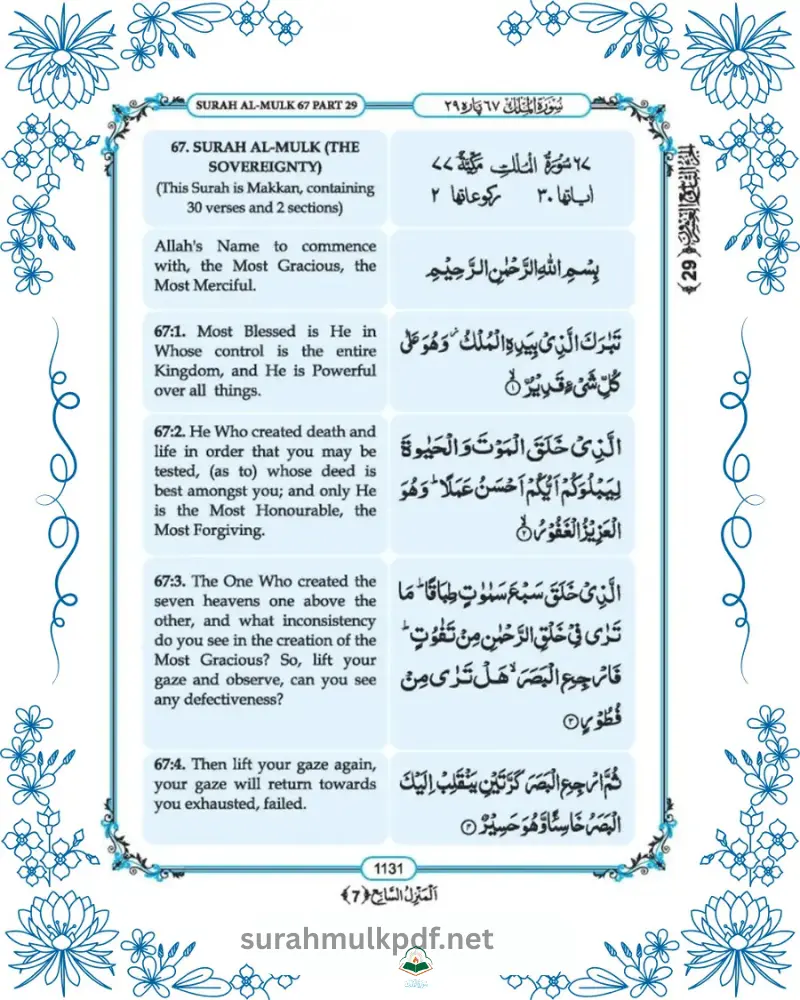 SURAH AL-MULK 67 PART 29
سُوْرَةُ الْمُلْك ٦٧ پارہ ٢٩
67. SURAH AL-MULK (THE
SOVEREIGNTY)
(This Surah is Makkan, containing
30 verses and 2 sections)
٦٧ سُوْرَةُ الْمُلْكِ مَكِّيَّةٌ ٧٧
اٰیاتها ٣٠ رکوعاتها ٢
Allah's Name to commence
with, the Most Gracious, the
Most Merciful.
بِسْمِ اللّٰهِ الرَّحْمٰنِ الرَّحِيْمِ
67:1. Most Blessed is He in
Whose control is the entire
Kingdom, and He is Powerful
over all things.
تَبٰرَكَ الَّذِیْ بِیَدِهِ الْمُلْكُ ؗ وَهُوَ عَلٰی
كُلِّ شَیْءٍ قَدِیْرُۨ ۙ﴿۱﴾
67:2. He Who created death and
life in order that you may be
tested, (as to) whose deed is
best amongst you; and only He
is the Most Honourable, the
Most Forgiving.
الَّذِیْ خَلَقَ الْمَوْتَ وَالْحَیٰوةَ
لِیَبْلُوَكُمْ اَیُّكُمْ اَحْسَنُ عَمَلًا ؕ وَهُوَ
الْعَزِیْزُ الْغَفُوْرُ ۙ﴿۲﴾
67:3. The One Who created the
seven heavens one above the
other, and what inconsistency
do you see in the creation of the
Most Gracious? So, lift your
gaze and observe, can you see
any defectiveness?
الَّذِیْ خَلَقَ سَبْعَ سَمٰوٰتٍ طِبَاقًا ؕ مَا
تَرٰی فِیْ خَلْقِ الرَّحْمٰنِ مِنْ تَفٰوُتٍ ؕ
فَارْجِعِ الْبَصَرَ ۙ هَلْ تَرٰی مِنْ
فُطُوْرٍ ﴿۳﴾
67:4. Then lift your gaze again,
your gaze will return towards
you exhausted, failed.
ثُمَّ ارْجِعِ الْبَصَرَ كَرَّتَیْنِ یَنْقَلِبْ اِلَیْكَ
الْبَصَرُ خَاسِئًا وَّهُوَ حَسِیْرٌ ﴿۴﴾
﴿29﴾
1131
اَلْمَنْزِلُ السَّابِع ﴿7﴾
surahmulkpdf.net